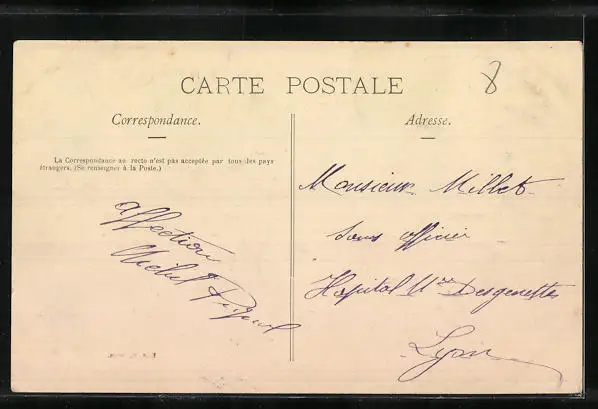 CARTE POSTALE
8
Correspondance.
Adresse.
La Correspondance au recto n'est pas acceptée par tous les pays
étrangers. (Se renseigner à la Poste.)
Affection
Michel
Monsieur Millet
Sous officier
Hopital Mre Desgenettes
Lyon